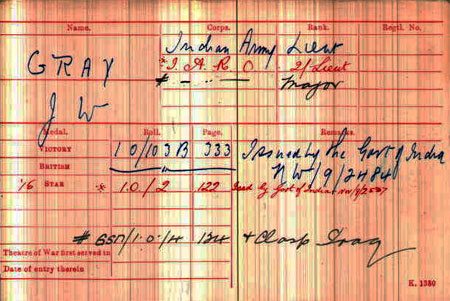 Name. Corps. Rank. Regtl. No.
GRAY Indian Army Lieut
* I. A. R. O 2/Lieut
# — " — Major
J W
Medal. Roll. Page. Remarks.
VICTORY 10/103B 333 Issued by the Govt of India
BRITISH NW/9/2484
STAR * 10/2 122 Issd by Govt of India NW/9/2567
# GSM/10/4 124 + Clasp Iraq
Theatre of War first served in
Date of entry therein
K. 1380